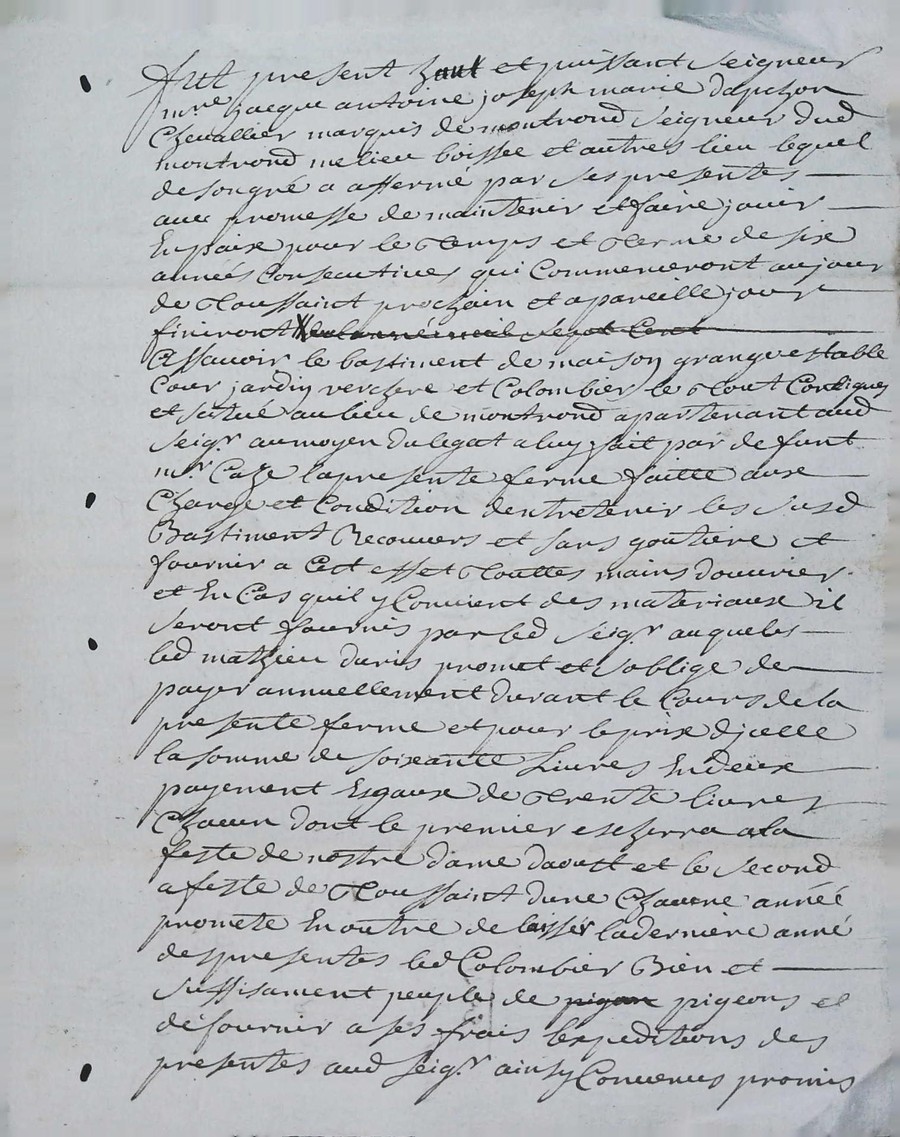 fut present haut et puissant seigneur
mre jacque antoine joseph marie dapchon
Chevallier marquis de montrond seigneur dud
montrond melieu boissee et autres lieu lequel
de son gré a affermé par ses presentes
avec promesse de maintenir et faire jouir
En paix pour le temps et terme de six
années Consecutives qui Commenceront au jour
de toussaint prochain et a pareille jour
finiront
Assavoir le bastiment de maison grange estable
Cour jardin verchere et Colombier le tout Contigues
et situé au lieu de montrond apartenant aud
seigr au moyen du legat a luy fait par defunt
mr Caze la presente ferme faitte aux
Charge et Condition dentretenir les susd
Bastiment Recouvers et sans goutiere et
fournir a Cest effet touttes mains douvrier
et En Cas quil y Convient des materiaux il
seront fournis par led seigr auquel
led mathieu duris promet et soblige de
payer annuellement durant le Cours de la
presente ferme et pour le prix dicelle
la somme de soixante Livres En deux
payement Esgaux de trente livres
Chacun dont le premier eschera a la
feste de nostre dame daoust et le second
a feste de toussaint dune Chacune année
promete En outre de laisser la derniere anné
des presentes led Colombier Bien et
suffisament peuple de pigeons et
de fournir a ses frais lexpeditions des
presentes aud seigr ainsy Convenus promis